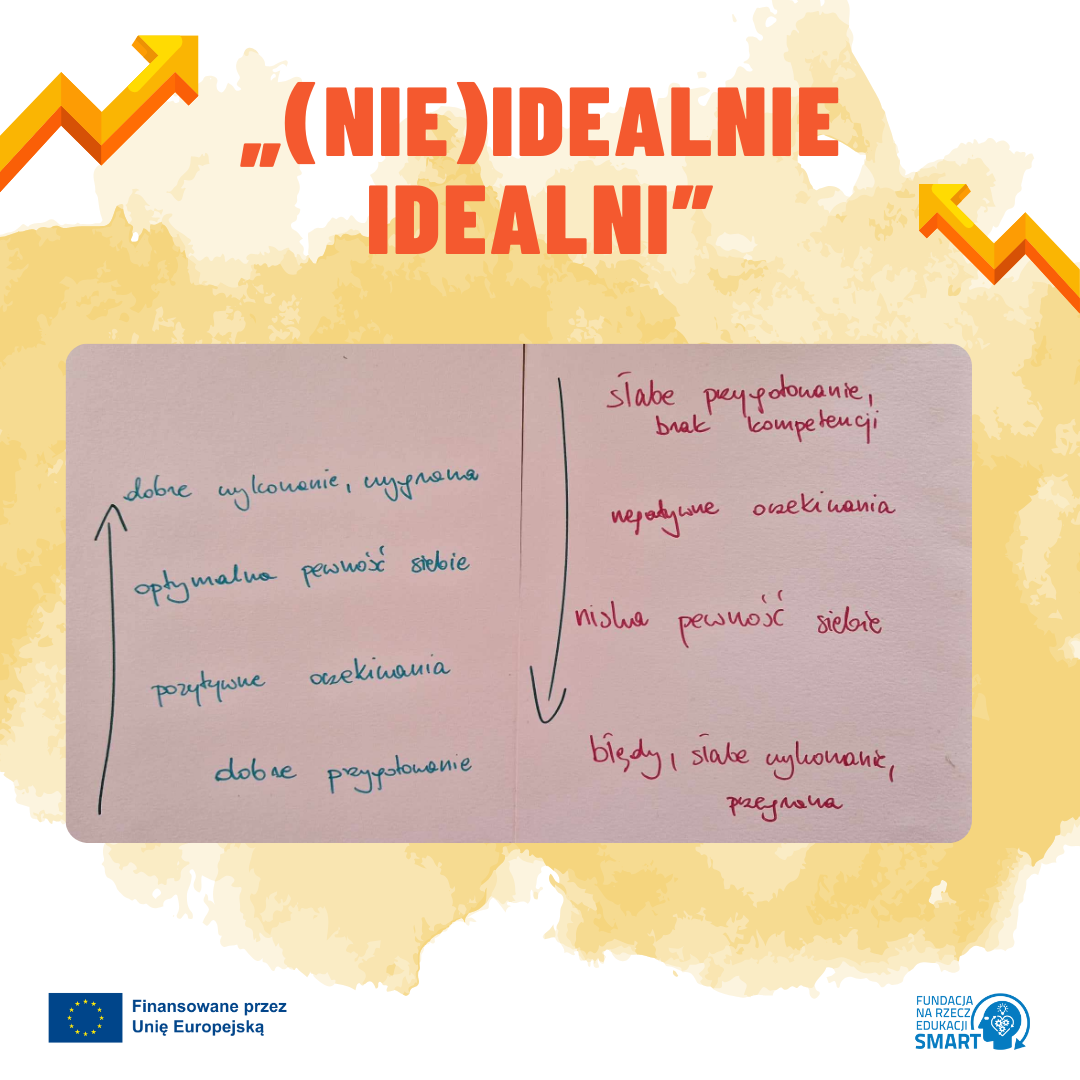 „(NIE)IDEALNIE
IDEALNI”
dobre wykonanie, wygrana
optymalna pewność siebie
pozytywne oczekiwania
dobre przygotowanie
słabe przygotowanie,
brak kompetencji
negatywne oczekiwania
niska pewność siebie
błędy, słabe wykonanie,
przegrana
Finansowane przez
Unię Europejską
FUNDACJA
NA RZECZ
EDUKACJI
SMART